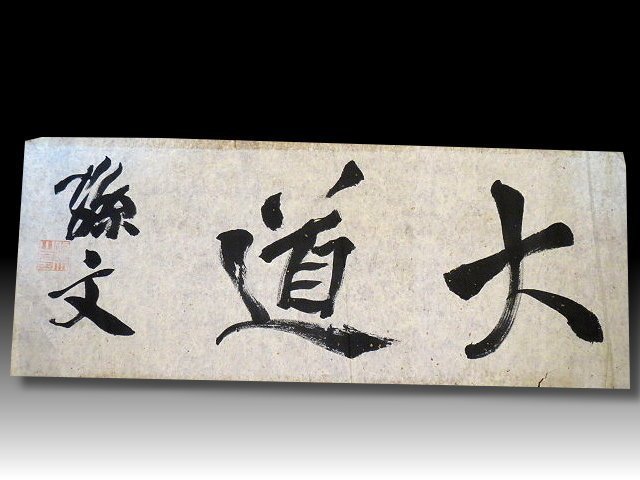 大道
孫文